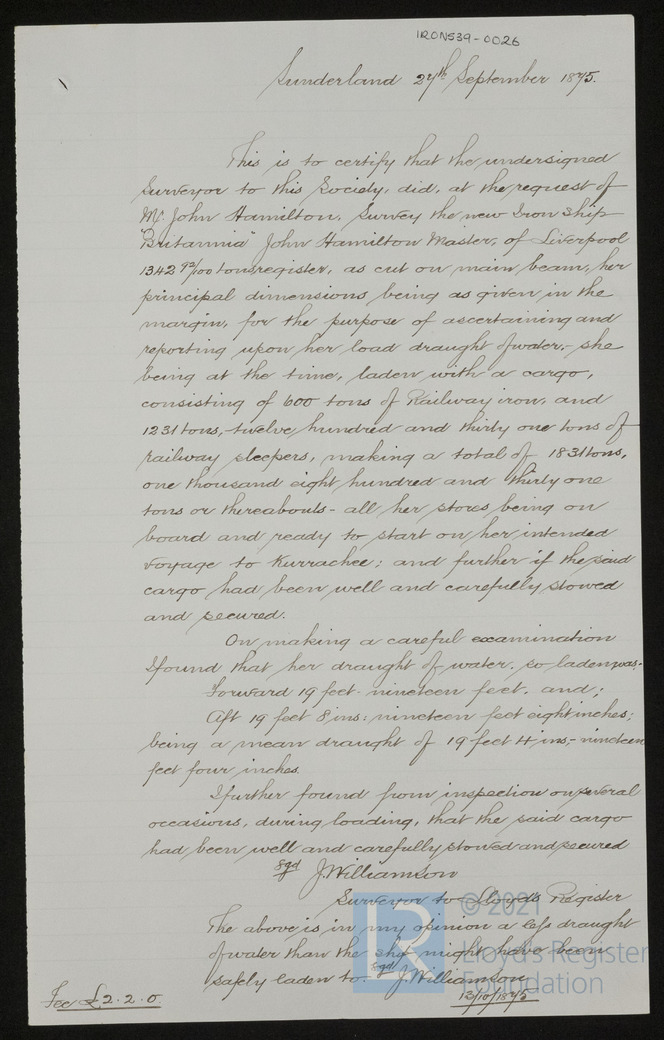 IRON539-0026
Sunderland 27th September 1875.
This is to certify that the undersigned
Surveyor to this Society, did, at the request of
Mr. John Hamilton, Survey the new Iron Ship
"Britannia" John Hamilton Master, of Liverpool
1342 92/100 tons register, as cut on main beam, her
principal dimensions being as given in the
margin, for the purpose of ascertaining and
reporting upon her load draught of water,- she
being at the time, laden with a cargo,
consisting of 600 tons of Railway iron, and
1231 tons,- twelve hundred and thirty one tons of
railway sleepers, making a total of 1831 tons,
one thousand eight hundred and thirty one
tons or thereabouts - all her stores being on
board and ready to start on her intended
voyage to Kurrachee; and further if the said
cargo had been well and carefully stowed
and secured.
On making a careful examination
I found that her draught of water, so laden was:-
Forward 19 feet - nineteen feet, and;
Aft 19 feet 8 ins: nineteen feet eight inches;
being a mean draught of 19 feet 4 ins,- nineteen
feet four inches.
I further found from inspection on several
occasions, during loading, that the said cargo
had been well and carefully stowed and secured
Sgd J. Williamson
Surveyor to Lloyd's Register
The above is in my opinion a less draught
of water than the ship might have been
safely laden to. Sgd J. Williamson
13/10/1875
Fee £2.2.0.
© 2021
LR
Lloyd's Register
Foundation